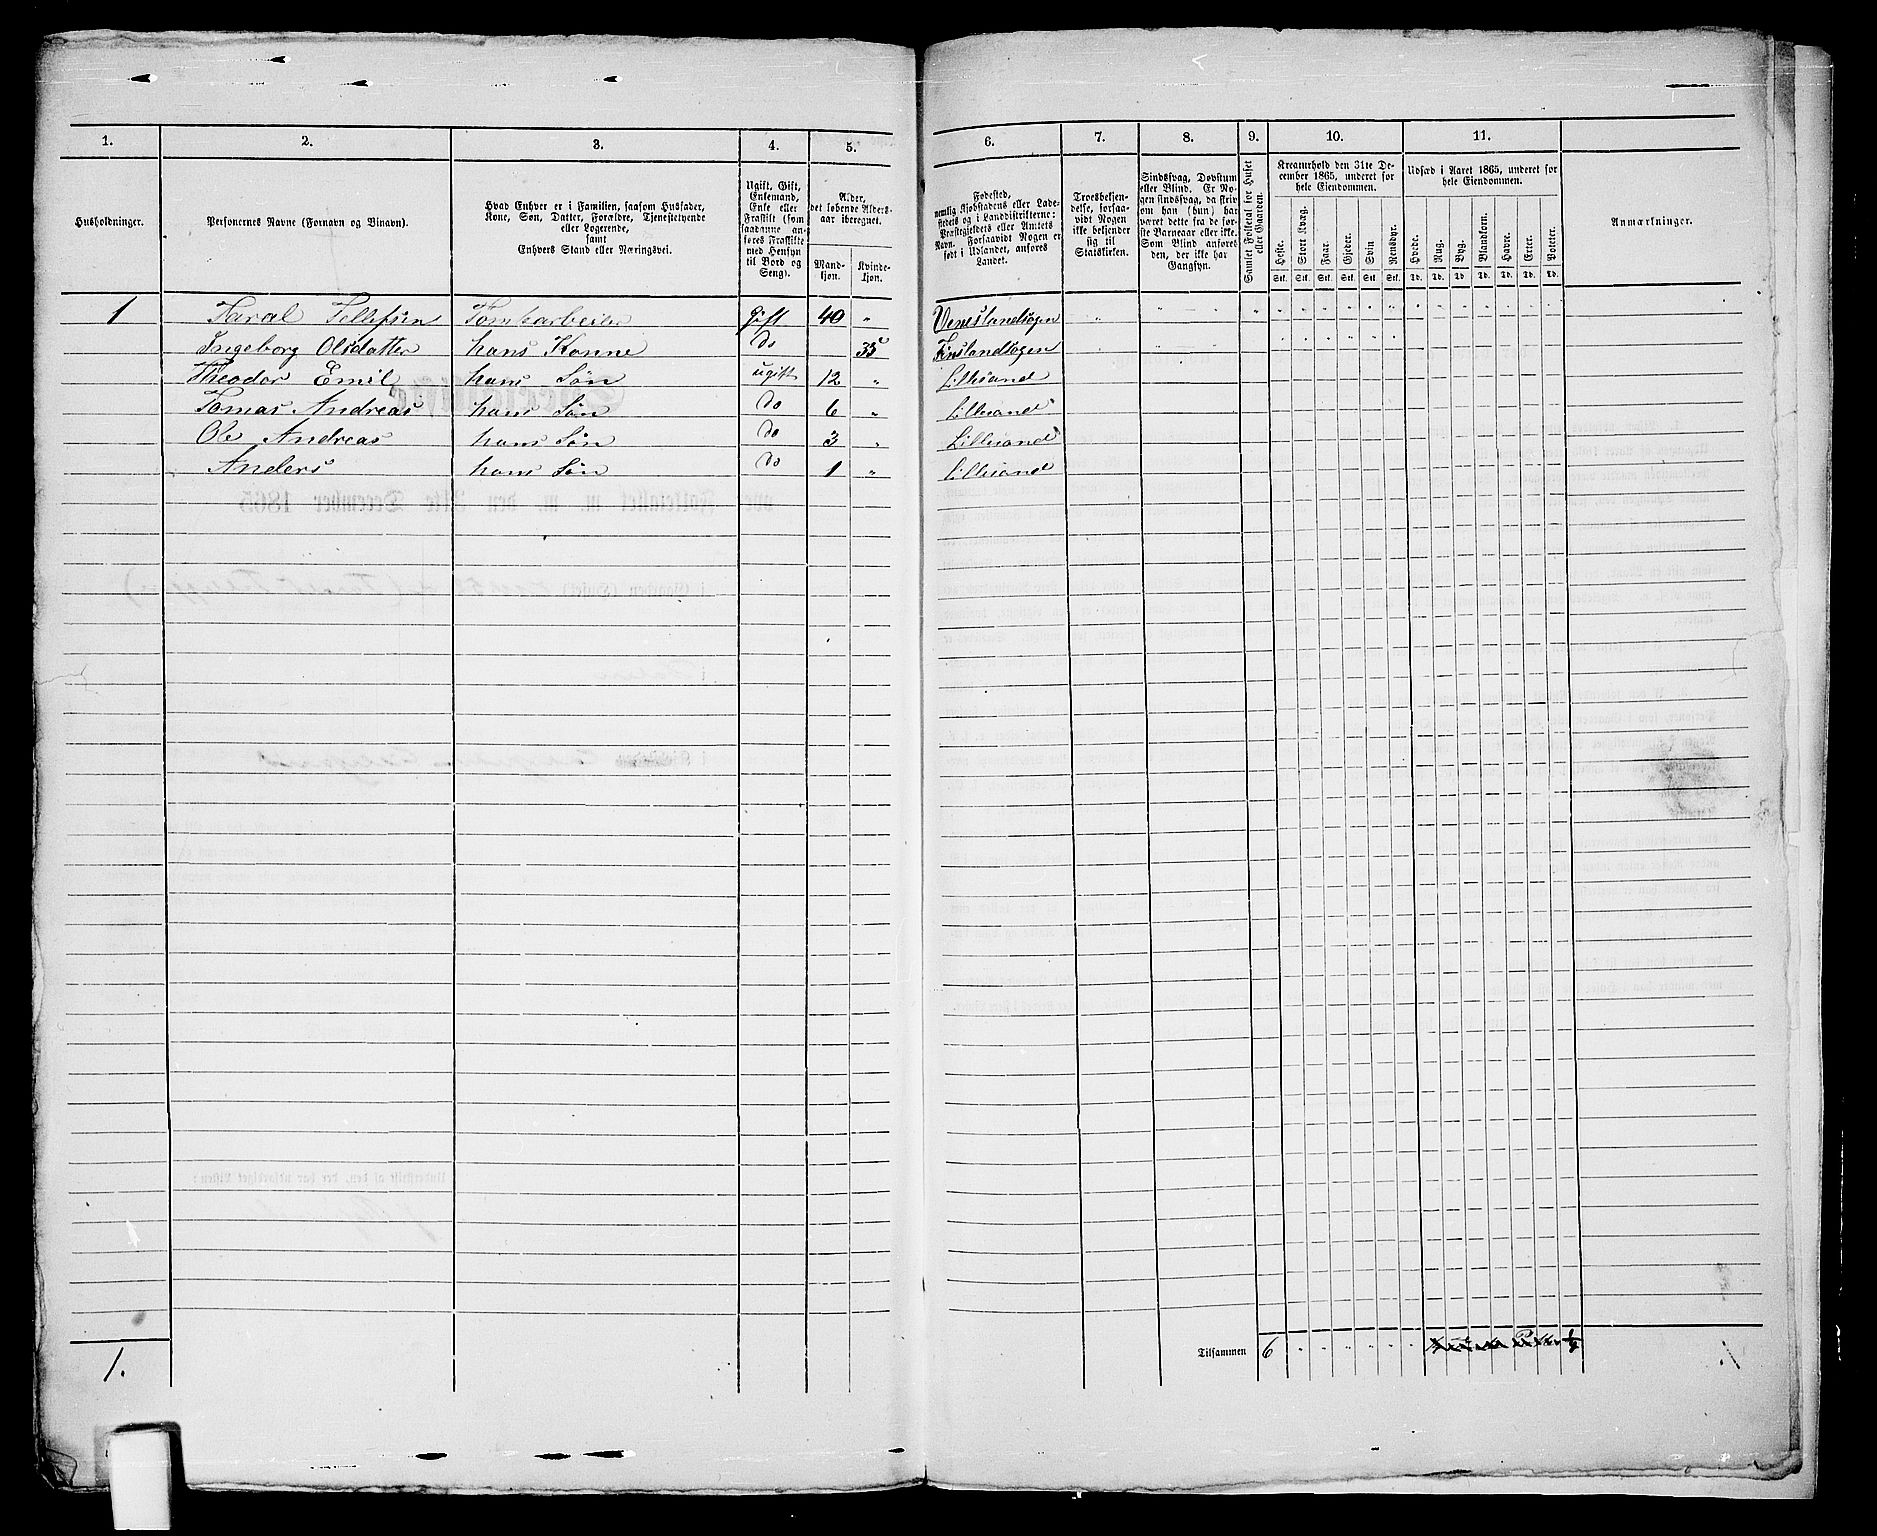 1. 2. 3. 4. 5. 6. 7. 8. 9. 10. 11.
Husholdninger.
Personernes Navne (Fornavn og Binavn).
Hvad Enhver er i Familien, saasom Husfader,
Kone, Søn, Datter, Forældre, Tjenestetyende
eller Logerende,
samt
Enhvers Stand eller Næringsvei.
Ugift, Gift,
Enkemand,
Enke eller
Fraskilt (som
saadanne an-
føres Fraskilte
med Hensyn
til Bord og
Seng).
Alder,
det løbende Alders-
aar iberegnet.
Mand-
kjøn.
Kvinde-
kjøn.
Fødested,
nemlig Kjøbstadens eller Lade-
stedets og i Landdistrikterne:
Præstegjeldets eller Amtets
Navn. Forsaavidt Nogen er
født i Udlandet, anføres
Landet.
Troesbekjen-
delse, forsaa-
vidt Nogen
ikke bekjender
sig til
Statskirken.
Sindssvag, Døvstum
eller Blind. Er No-
gen sindssvag, da skriv
om han (hun) har
været dette fra de før-
ste Barneaar eller ikke.
Som Blind anføres
den, der ikke har
Gangsyn.
Samlet Folketal for Huset
eller Gaarden.
Kreaturhold den 31te De-
cember 1865, underet for
hele Eiendommen.
Heste. Stort Kvæg. Faar. Gjeder. Svin Rensdyr.
Stk. Stk. Stk. Stk. Stk. Stk.
Udsæd i Aaret 1865, underet for
hele Eiendommen.
Hvede. Rug. Byg. Blandkorn. Havre. Erter. Poteter.
Td. Td. Td. Td. Td. Td. Td.
Anmærkninger.
1 Taral Tellefsen Tomtearbeider Gift 40 " Veneslandsogen
Ingeborg Olsdatter hans Konne do 35 Finslandsogen
Theodor Emil hans Søn ugift 12 " Lillesand
Tomas Andreas hans Søn do 6 " Lillesand
Ole Andreas hans Søn do 3 " Lillesand
Anders hans Søn do 1 " Lillesand
1. Tilsammen 6 " " " " " " 1/4